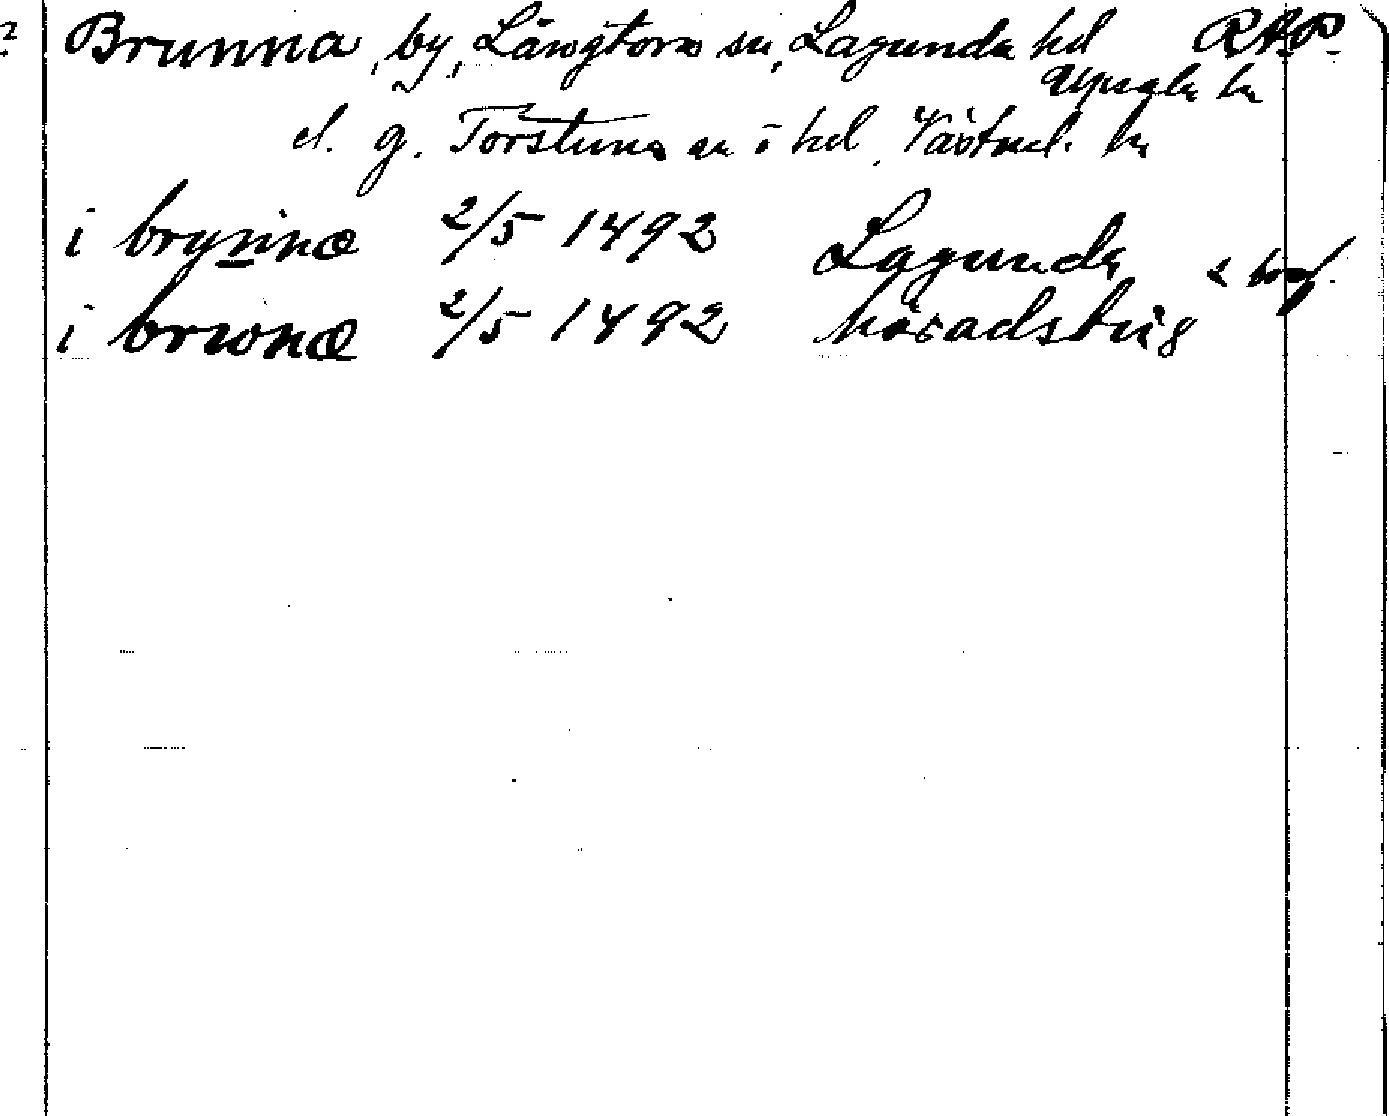 Brunna, by, Långtora sn, Lagunda hd RAP
Uppsala ln
el. g. Torstuna sn o hd, Västmd. ln
i brynnæ 2/5 1492 Lagunda 2 bref.
i brwnæ 2/5 1492 häradsting